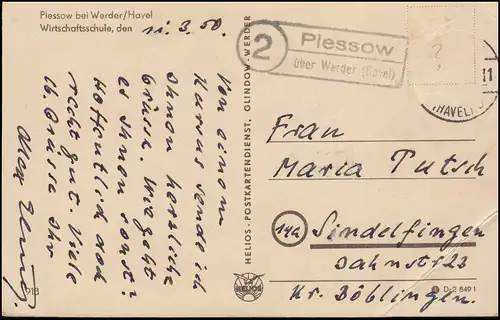 Plessow bei Werder/Havel
Wirtschaftsschule, den 11.3.50.
Von einem
Kursus sende ich
Ihnen herzliche
Grüsse. Wie geht
es Ihnen sonst?
Hoffentlich doch
recht gut. Viele
Grüsse Ihr
2
Plessow
über Werder (Havel)
?
11
(HAVEL)
HELIOS-POSTKARTENDIENST, GLINDOW-WERDER
HELIOS
Frau
Maria Putsch
14a Sindelfingen
Jahnstr 23
Kr. Böblingen.
918
D-2 8491